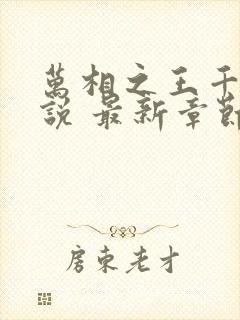 萬相之王千
說 最新章節
房東老才